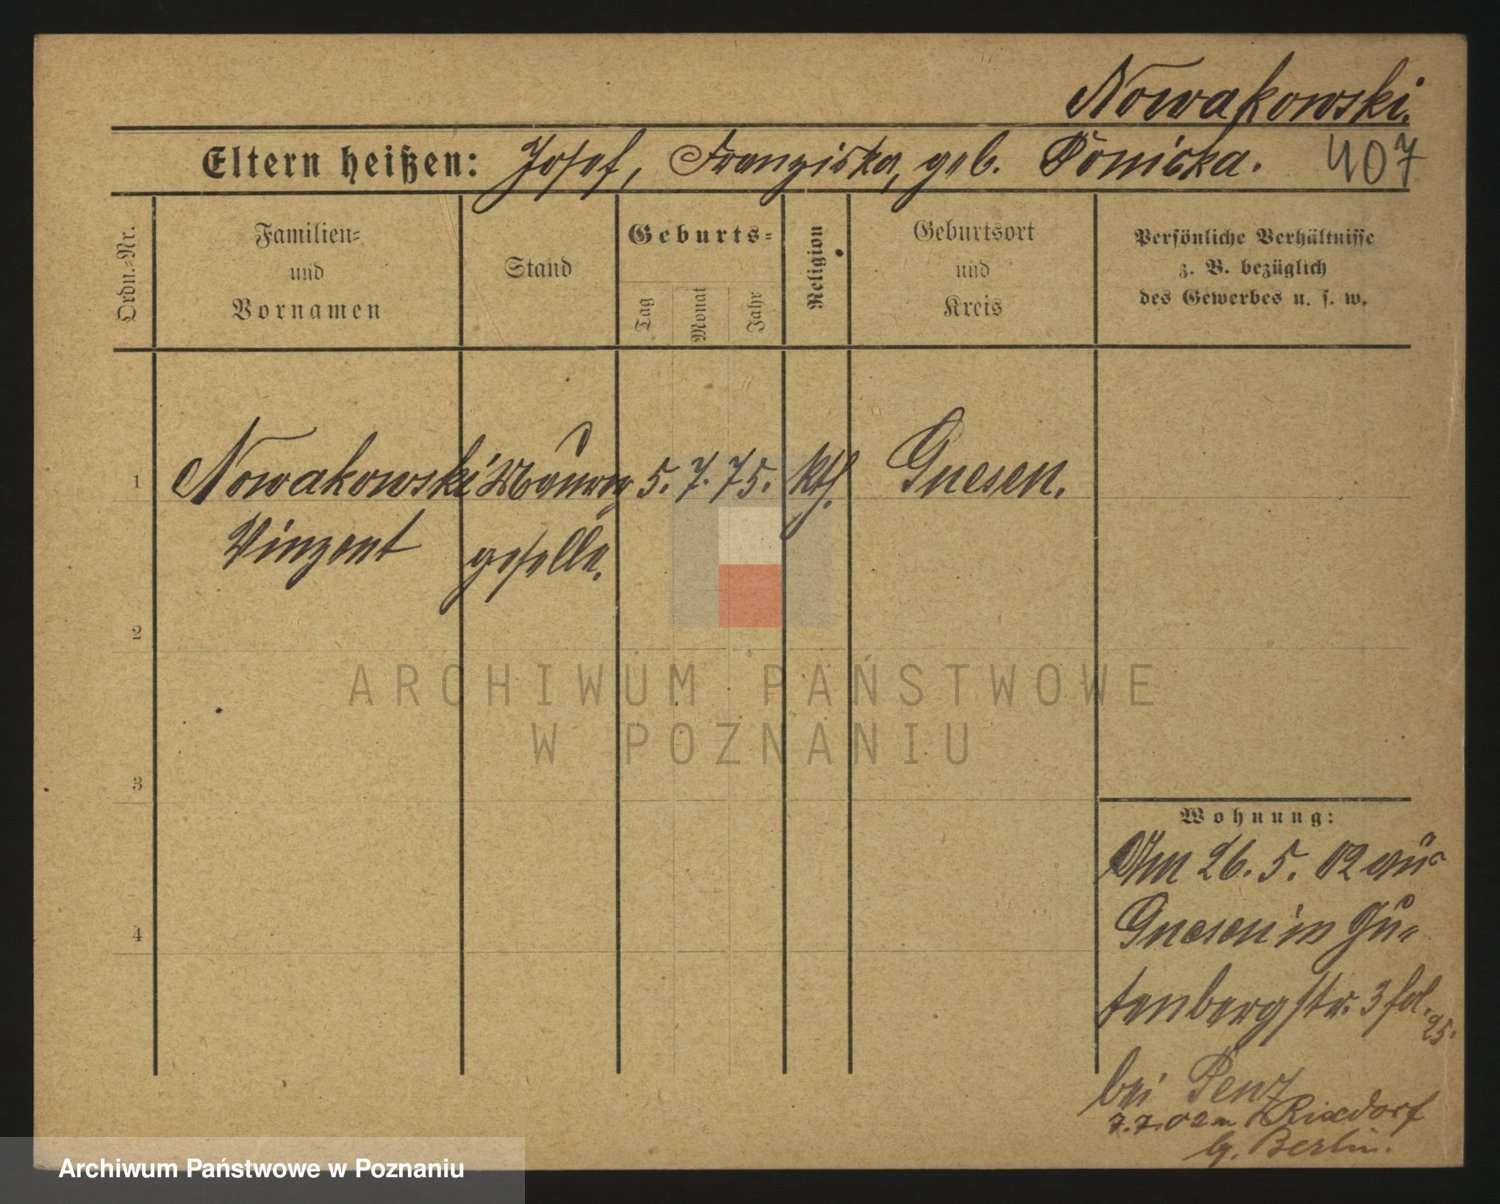 Nowakowski.
Eltern heißen: Josef, Franziska, geb. Ponicka. 407
Ordn.-Nr.
Familien-
und
Vornamen
Stand
Geburts-
Tag
Monat
Jahr
Religion
Geburtsort
und
Kreis
Persönliche Verhältnisse
z. B. bezüglich
des Gewerbes u. s. w.
1 Nowakowski Maurer 5. 7. 75. kth. Gnesen.
Vinzent geselle.
2
ARCHIWUM PAŃSTWOWE
W POZNANIU
3
Wohnung:
Am 26. 5. 02 aus
4 Gnesen in Gu-
tenbergstr. 3 fol. 25.
bei Penz
7.7.02 n Rixdorf
b. Berlin.
Archiwum Państwowe w Poznaniu